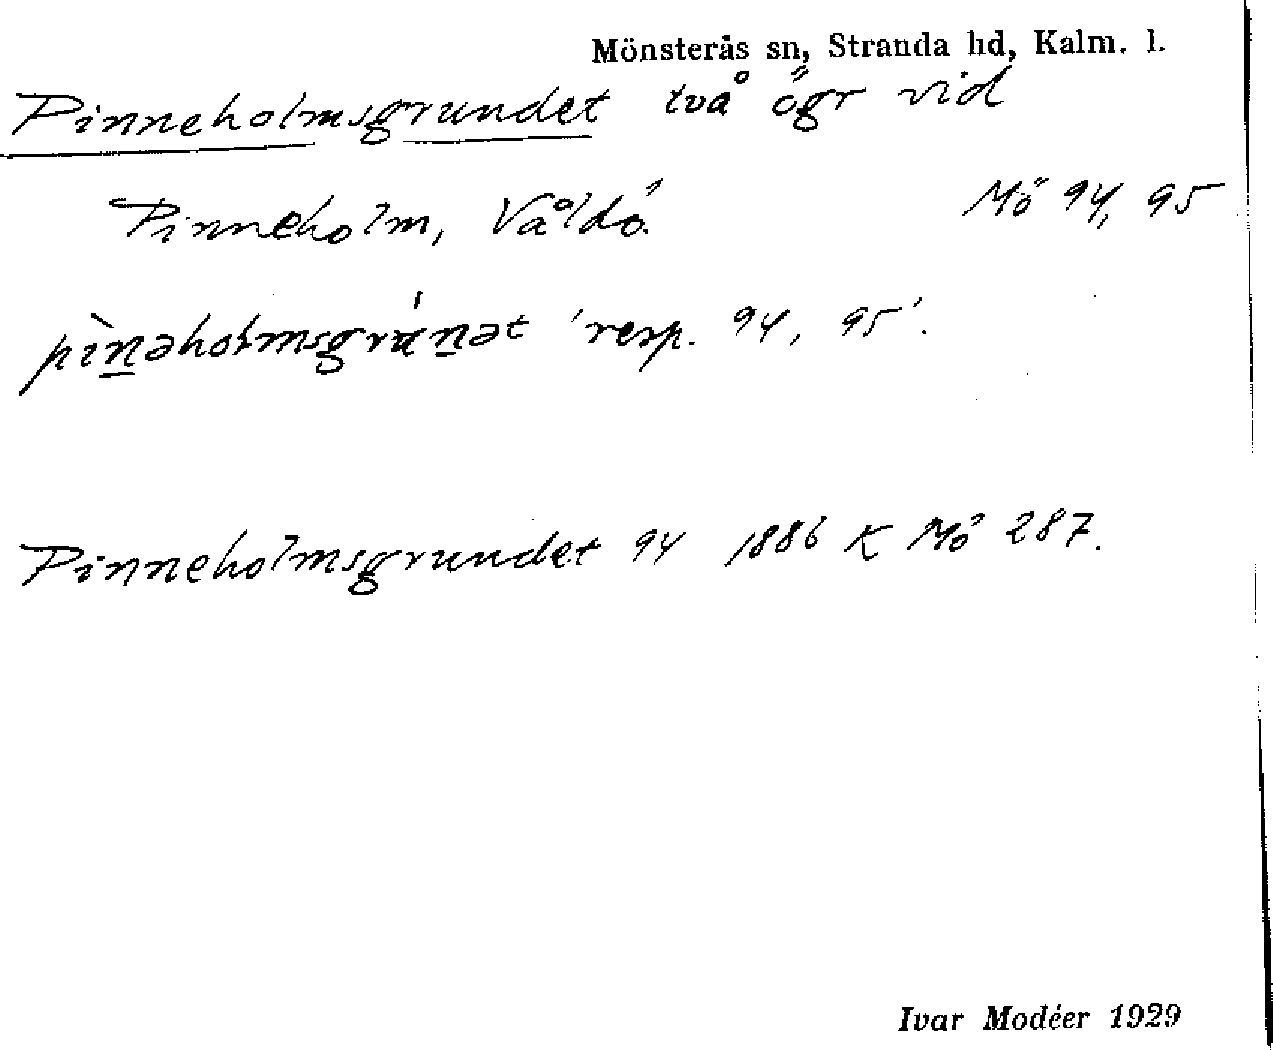 Mönsterås sn, Stranda hd, Kalm. l.
Pinneholmsgrundet två ögr vid
Pinneholm, Vållö. Mö 94, 95
pìn̲əholmsgrún̲ət 'resp. 94, 95'.
Pinneholmsgrundet 94 1886 K Mö 287.
Ivar Modéer 1929